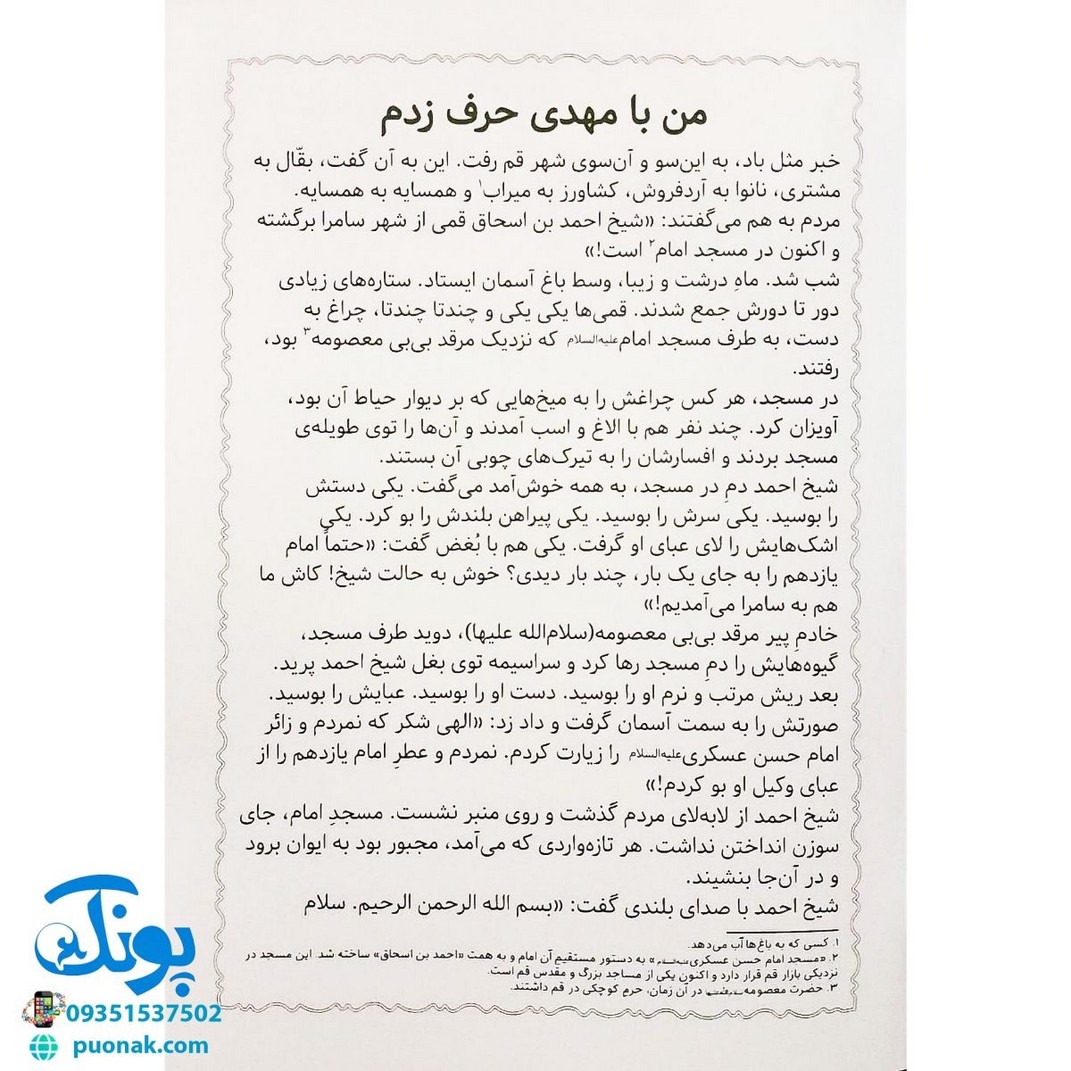 من با مهدی حرف زدم
خبر مثل باد، به این‌سو و آن‌سوی شهر قم رفت. این به آن گفت، بقّال به
مشتری، نانوا به آردفروش، کشاورز به میراب۱ و همسایه به همسایه.
مردم به هم می‌گفتند: «شیخ احمد بن اسحاق قمی از شهر سامرا برگشته
و اکنون در مسجد امام۲ است!»
شب شد. ماهِ درشت و زیبا، وسط باغ آسمان ایستاد. ستاره‌های زیادی
دور تا دورش جمع شدند. قمی‌ها یکی یکی و چندتا چندتا، چراغ به
دست، به طرف مسجد امام علیه‌السلام که نزدیک مرقد بی‌بی معصومه۳ بود،
رفتند.
در مسجد، هر کس چراغش را به میخ‌هایی که بر دیوار حیاط آن بود،
آویزان کرد. چند نفر هم با الاغ و اسب آمدند و آن‌ها را توی طویله‌ی
مسجد بردند و افسارشان را به تیرک‌های چوبی آن بستند.
شیخ احمد دمِ در مسجد، به همه خوش‌آمد می‌گفت. یکی دستش
را بوسید. یکی سرش را بوسید. یکی پیراهن بلندش را بو کرد. یکی
اشک‌هایش را لای عبای او گرفت. یکی هم با بُغض گفت: «حتماً امام
یازدهم را به جای یک بار، چند بار دیدی؟ خوش به حالت شیخ! کاش ما
هم به سامرا می‌آمدیم!»
خادمِ پیر مرقد بی‌بی معصومه(سلام‌الله علیها)، دوید طرف مسجد،
گیوه‌هایش را دمِ مسجد رها کرد و سراسیمه توی بغل شیخ احمد پرید.
بعد ریش مرتب و نرم او را بوسید. دست او را بوسید. عبایش را بوسید.
صورتش را به سمت آسمان گرفت و داد زد: «الهی شکر که نمردم و زائر
امام حسن عسکری علیه‌السلام را زیارت کردم. نمردم و عطرِ امام یازدهم را از
عبای وکیل او بو کردم!»
شیخ احمد از لابه‌لای مردم گذشت و روی منبر نشست. مسجدِ امام، جای
سوزن انداختن نداشت. هر تازه‌واردی که می‌آمد، مجبور بود به ایوان برود
و در آن‌جا بنشیند.
شیخ احمد با صدای بلندی گفت: «بسم الله الرحمن الرحیم. سلام
۱. کسی که به باغ‌ها آب می‌دهد.
۲. «مسجد امام حسن عسکری» به دستور مستقیم آن امام و به همت «احمد بن اسحاق» ساخته شد. این مسجد در
نزدیکی بازار قم قرار دارد و اکنون یکی از مساجد بزرگ و مقدس قم است.
۳. حضرت معصومه در آن زمان، حرم کوچکی در قم داشتند.
پونک
09351537502
puonak.com